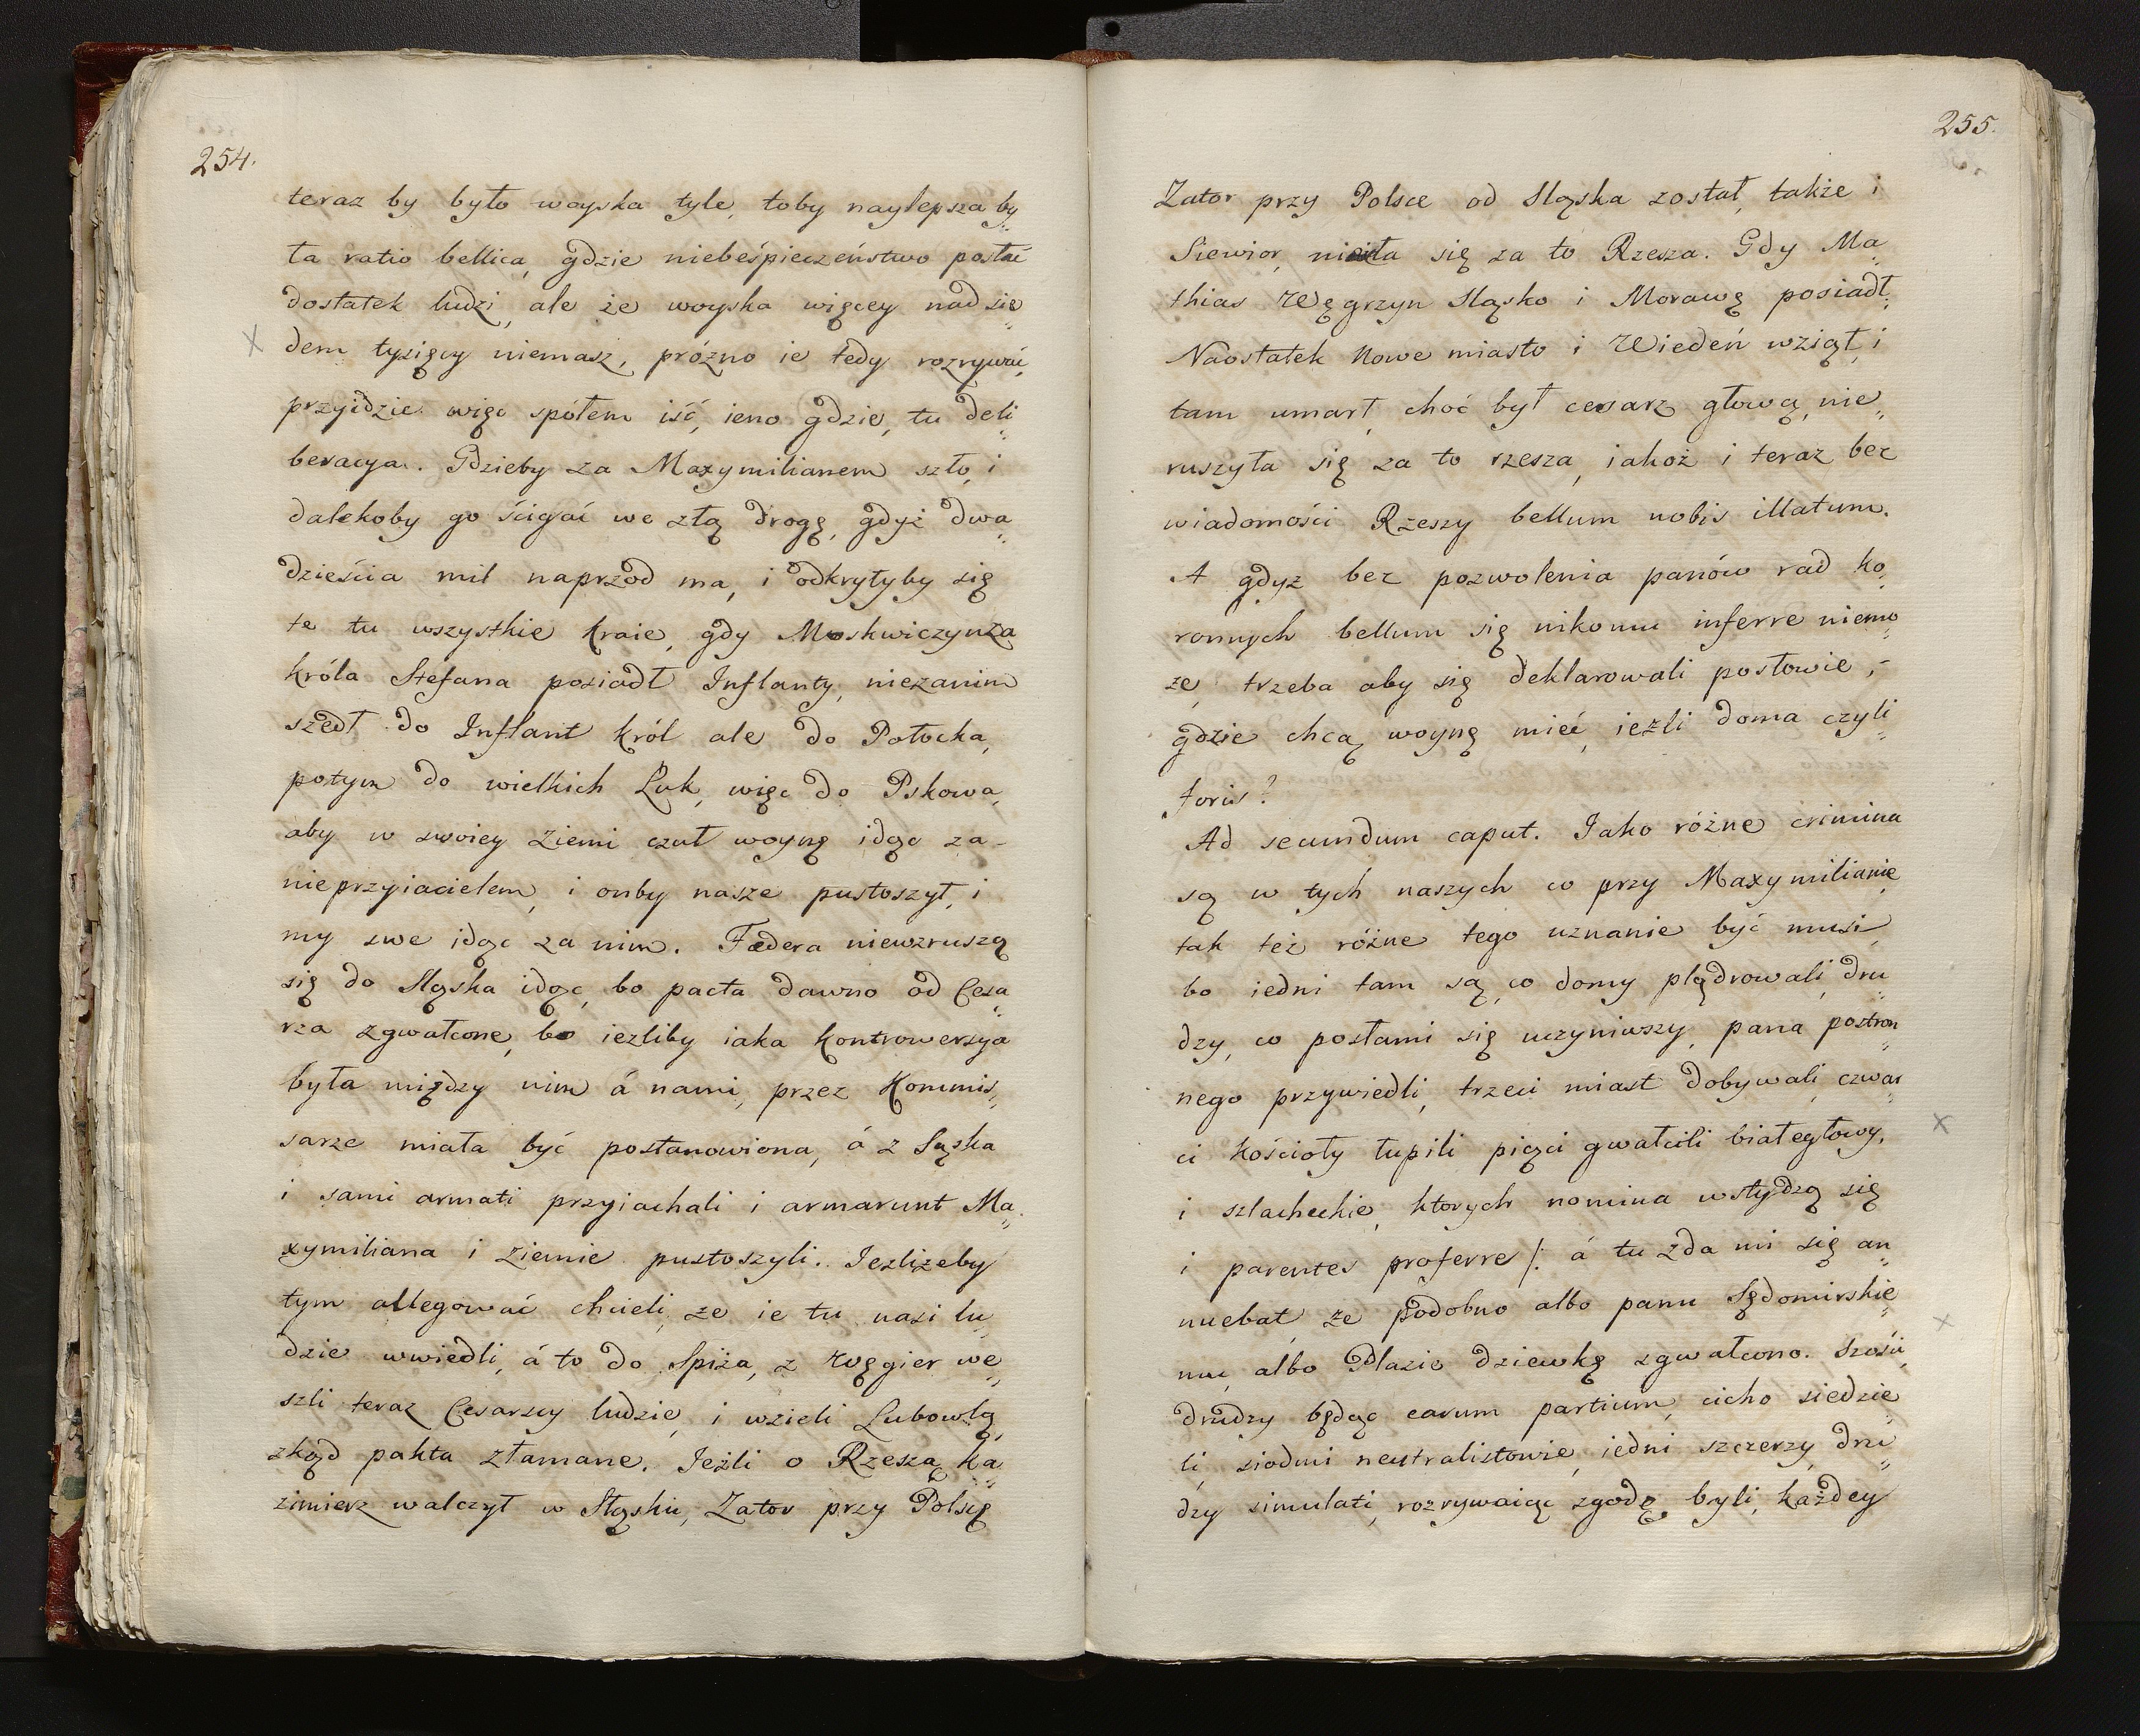 254.
teraz by było woyska tyle, toby naylepsza by„
ła ratio bellica, gdzie niebeśpieczeństwo posłać
dostatek ludzi, ale że woyska więcey nad sie„
dem tysięcy niemasz, próżno ie tedy rozrywać,
przyidzie więc spółem iść, ieno gdzie, tu deli„
beracya. Gdzieby za Maxymilianem szło, i
dalekoby go ścigać we złą drogę, gdyż dwa„
dzieścia mil naprzod ma, i odkrytyby się
te tu wszystkie kraie, gdy Moskwiczyn za
króla Stefana posiadł Inflanty, niezanim
szedł do Inflant król ale do Połocka,
potym do wielkich Luk, więc do Pskowa,
aby w swoiey ziemi czuł woynę idąc za-
nieprzyiacielem, i onby nasze pustoszył, i
my swe idąc za nim. Fœdera niewzruszą
się do Sląska idąc, bo pacta dawno od Cesa„
rza zgwałcone, bo iezliby iaka kontrowersya
była między nim á nami, przez Kommis„
sarze miała być postanowiona, á z Sąska
i sami armati przyiachali i armarunt Ma„
xymiliana i ziemie pustoszyli. Iezliżeby
tym allegować chcieli, że ie tu nasi lu„
dzie wwiedli, á to do Spiża, z Węgier we„
szli teraz Cesarscy ludzie, i wzieli Lubowlą,
zkąd pakta złamane. Ieźli o Rzeszą Ka„
zimierz walczył w Sląsku, Zator przy Polscę
255.
Zator przy Polsce od Sląska został, także i
Siewior, się za to Rzesza. Gdy Ma„
thias Węgrzyn Sląsko i Morawę posiadł,
Naostatek Nowe miasto i Wiedeń wziął, i
tam umarł, choć był cesarz głową, nie„
ruszyła się za to rzesza, iakoż i teraz bez
wiadomości Rzeszy bellum nobis illatum.
A gdyz bez pozwolenia panów rad ko„
ronnych bellum się nikomu inferre niemo„
że, trzeba aby się deklarowali posłowie,-
gdzie chcą woynę mieć, ieźli doma czyli„
foris?
Ad secundum caput. Iako różne crimina
są w tych naszych co przy Maxymilianie,
tak też różne tego uznanie być musi,
bo iedni tam są, co domy plądrowali, dru„
dzy, co posłami się uczyniwszy, pana postron„
nego przywiedli, trzeci miast dobywali, czwar„
ci kościoły łupili piąci gwałcili białegłowy,
i szlacheckie, ktorych nomina wstydzą się
i parentes proferre /: á tu zda mi się an„
nuebat, że podobno albo panu Sędomirskie„
mu, albo Plazie dziewkę zgwałcono. Szości,
drudzy będąc earum partium, cicho siedzie„
li, siodmi neutralistowie, iedni szczerzy, dru„
dzy simulati, rozrywaiąc zgodę byli, każdey